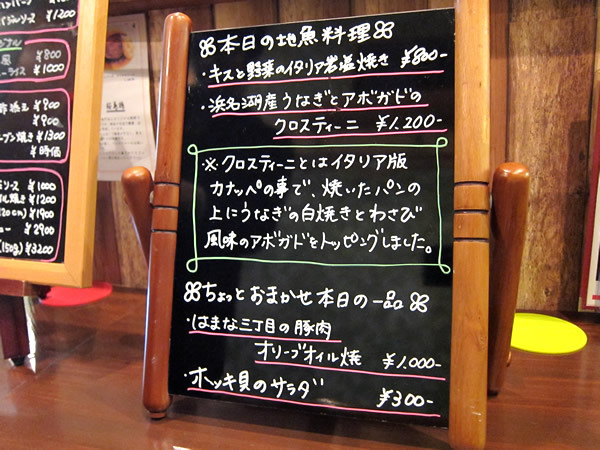 本日の地魚料理
・キスと野菜のイタリア岩塩焼き ¥800-
・浜名湖産うなぎとアボガドの
クロスティーニ ¥1.200-
※クロスティーニとはイタリア版
カナッペの事で、焼いたパンの
上にうなぎの白焼きとわさび
風味のアボガドをトッピングしました。
ちょっとおまかせ本日の一品
・はまな三丁目の豚肉
オリーブオイル焼 ¥1.000-
・ホッキ貝のサラダ ¥300-
¥1200
¥800
ライス ¥1000
¥900
¥900
ーブン焼き ¥1300
¥時価
ソース ¥1000
ル焼き ¥1200
20cm) ¥1900
ュー ¥2900
(150g) ¥3200